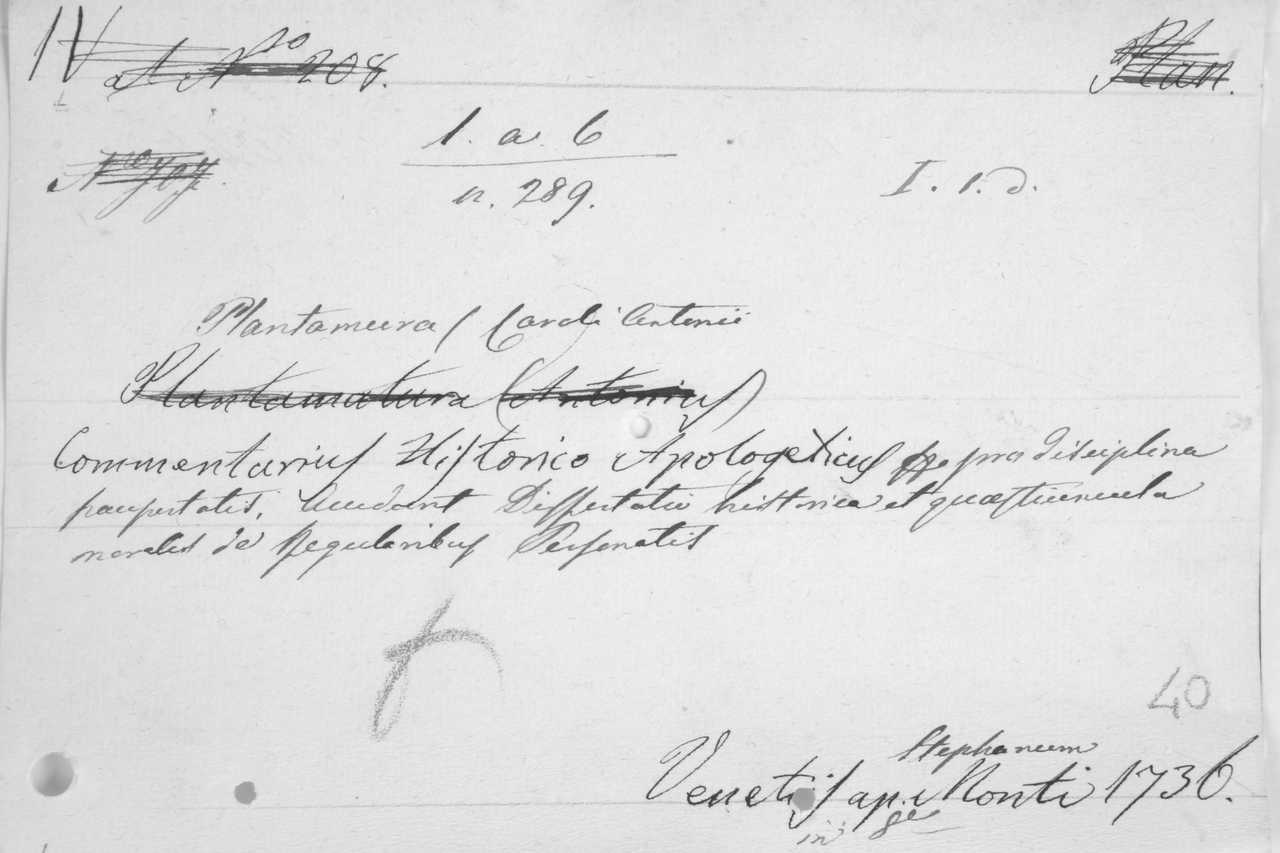 IV ad N<sup>ro</sup> 208. Plan.
N<sup>ro</sup> 707.
1. a. 6
n. 289. I. 1. d.
Plantamura Caroli Antonii
Plantamatura (Antonius)
Commentarius Historico Apologeticus pro disciplina
paupertatis. Accedunt Dissertatio historica et quæstiuncula
moralis de Regularibus Personatis
40
Stephanum
Venetijs ap. Monti 1736.
in 8<sup>o</sup>